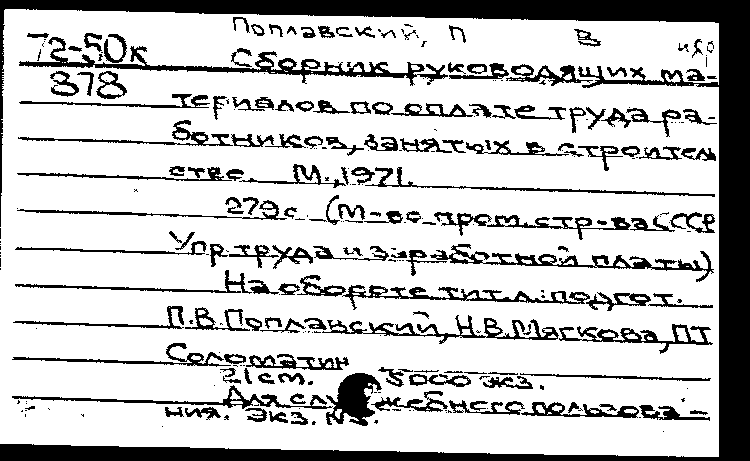 Поплавский, П В
72-50к
878
Сборник руководящих ма-
териалов по оплате труда ра-
ботников, занятых в строитель
стве. М., 1971.
279с (М-во пром. стр-ва СССР
Упр труда и заработной платы)
На обороте тит. л.: подгот.
П.В. Поплавский, Н.В. Мягкова, П.Т
Соломатин
21 см. 5000 экз.
Для служебного пользова-
ния. Экз. №